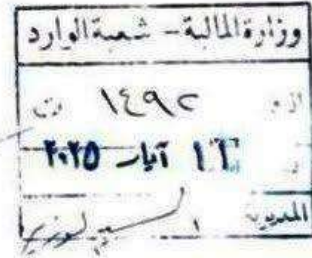 وزارة المالية - شعبة الوارد
١٤٩٢
١٦ آيار ٢٠٢٥
المديرية